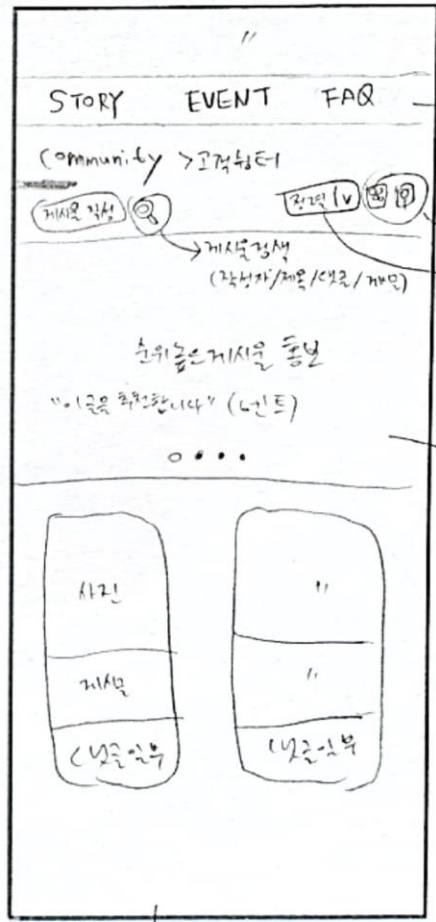 〃
STORY EVENT FAQ
Community >고객쉼터
게시물 작성 정렬 ∨
→게시물검색
(작성자/제목/댓글/
순위높은게시물 홍보
"이글을 추천합니다" (멘트)
사진 〃
게시물 〃
댓글일부 댓글일부